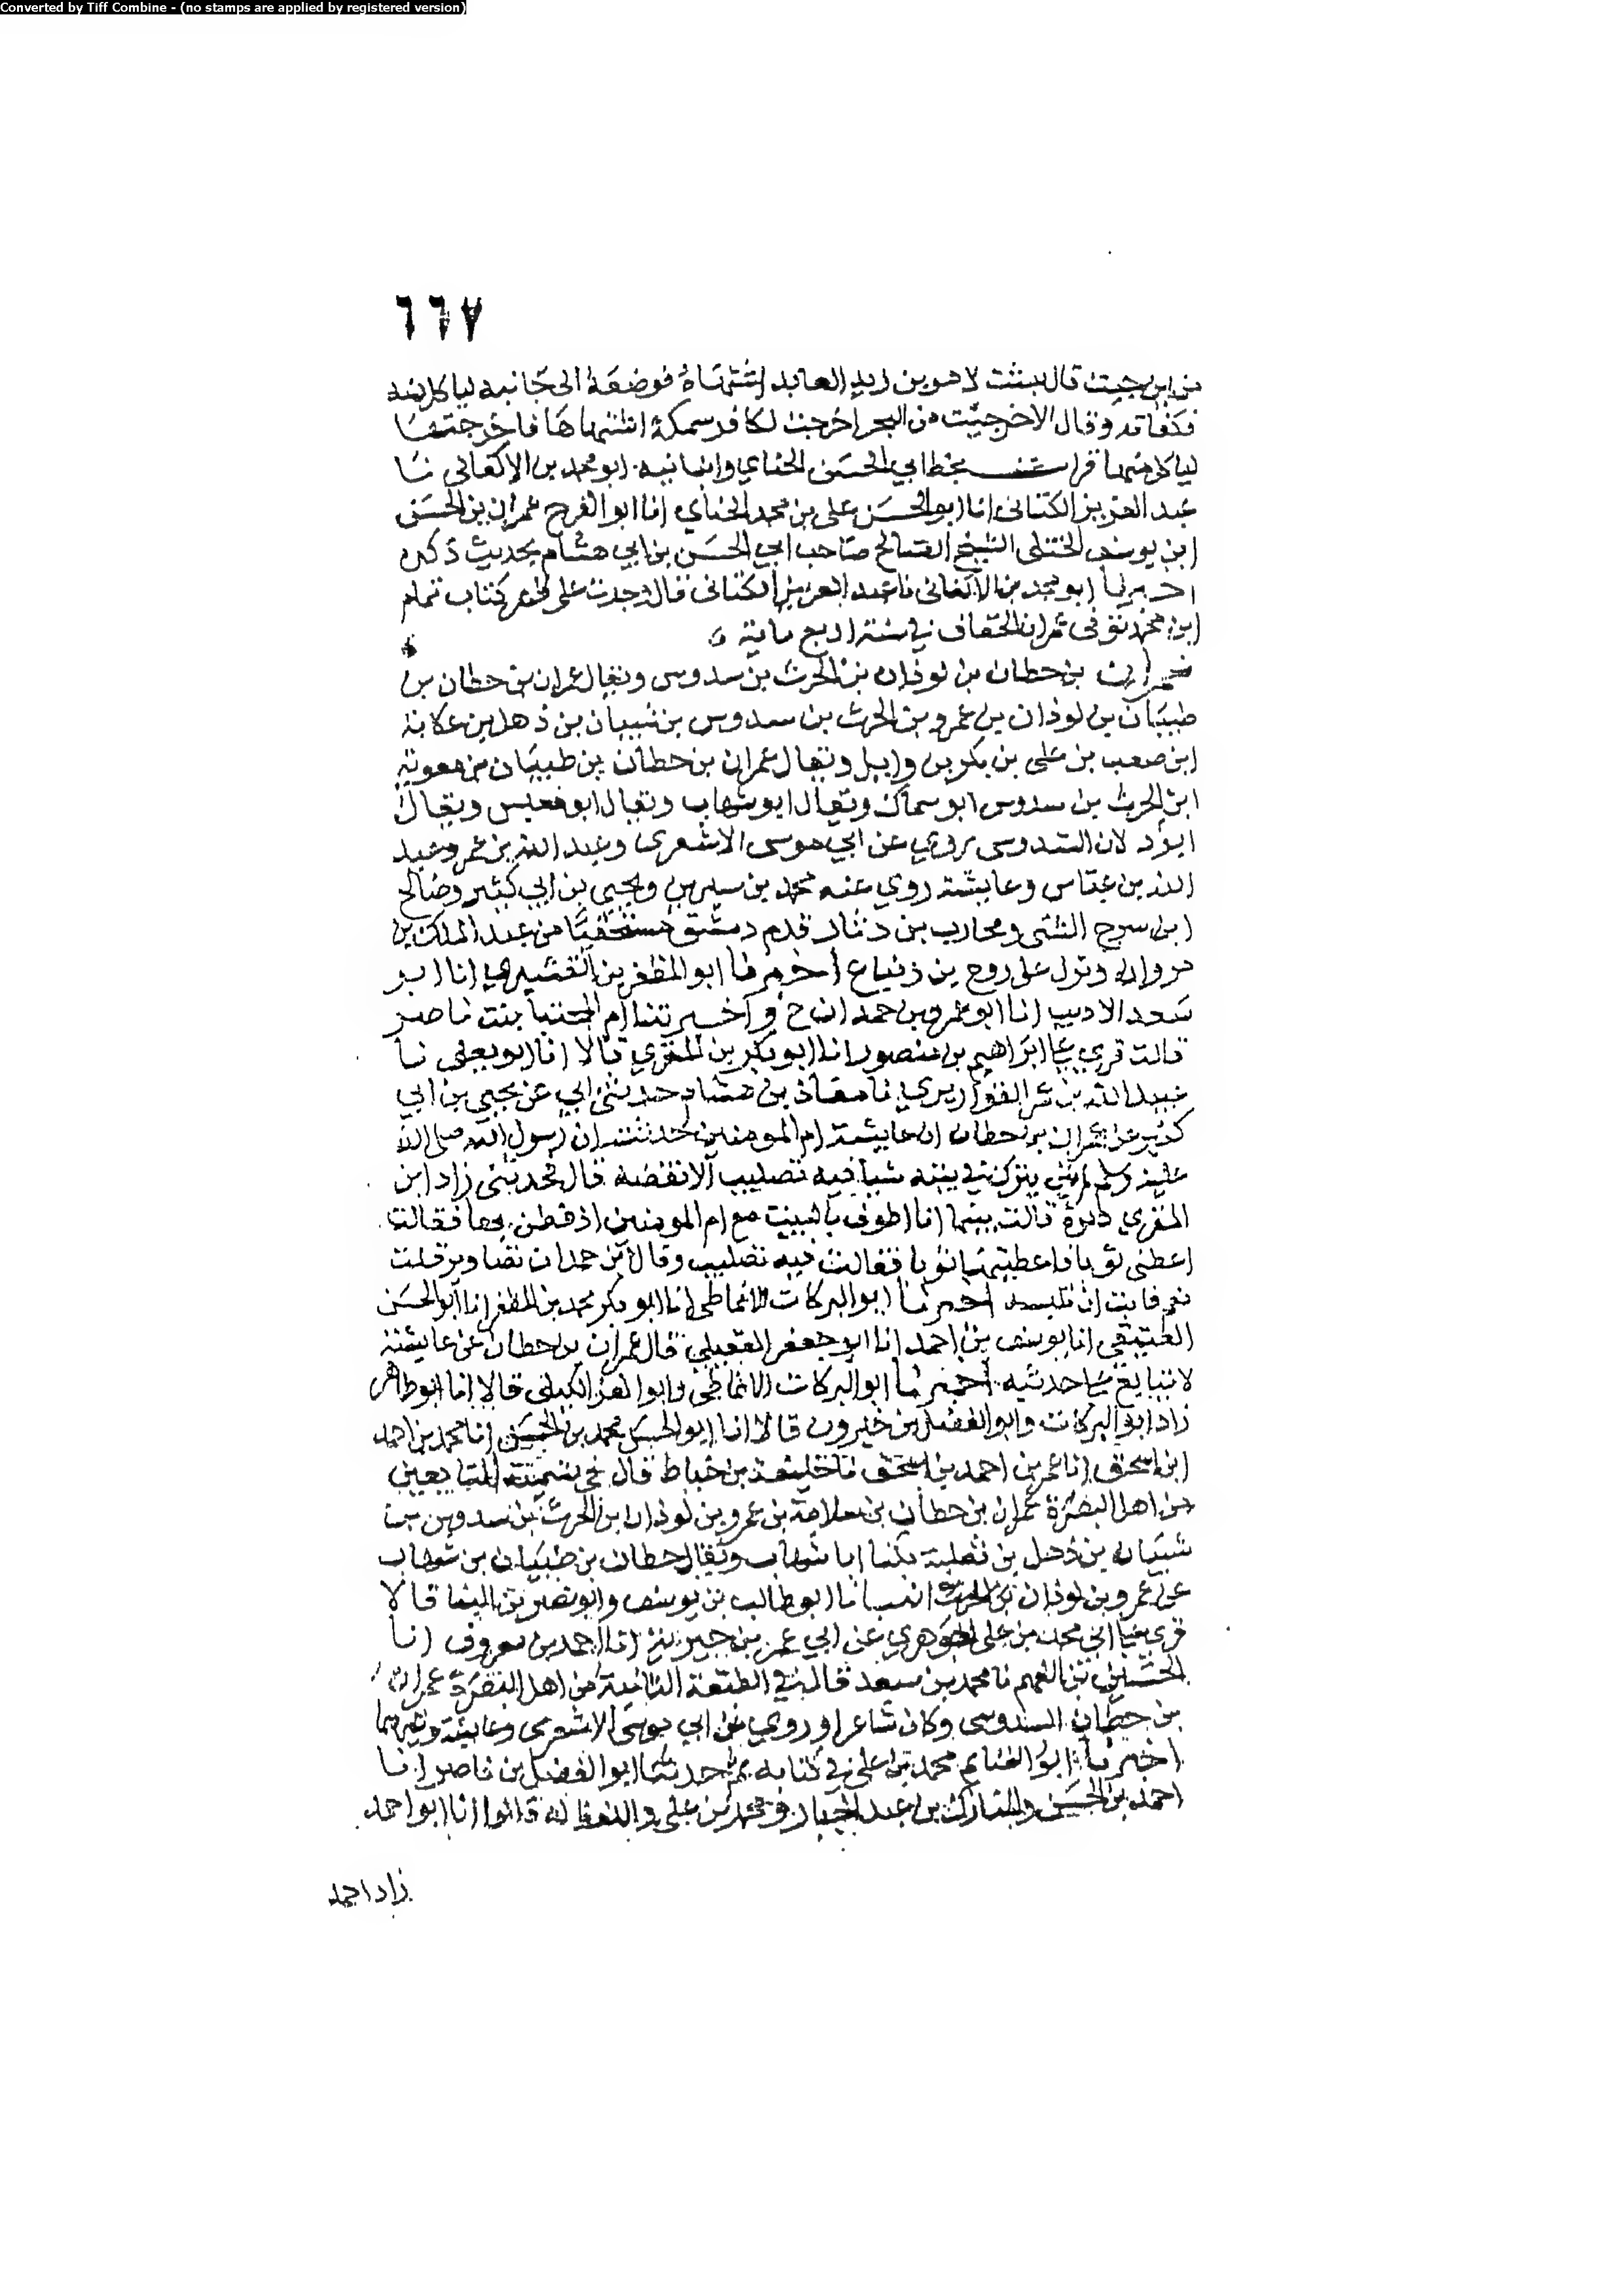 Converted by Tiff Combine - (no stamps are applied by registered version)
٦٦٧
من اين جيت قال بعثت لاهو بن زيد العابد اشتهاه فوضعه الى جانبه لياكل
وقال الاخر جيت من البحر اخرجت لكافر سمكة اشتهاها فاخرجتها
لياكل منها قرات بخط ابي الحسن الحناي وانبانيه ابو محمد بن الاكفاني نا
عبد العزيز الكتاني انا ابو الحسن على بن محمد الحناي انا ابو الفرج عمران بن الحسن
ابن يوسف الختلى الشيخ الصالح صاحب ابي الحسن بن ابي هشام بحديث ذكره
اخبرنا ابو محمد بن الاكفانى نا عبد العزيز الكتانى قال وجدت على ظهر كتاب تمام
ابن محمد توفى عمران الخفاف في سنة اربع ماية
عمران بن حطان بن لوذان بن الحرث بن سدوس ويقال عمران بن حطان بن
ظبيان بن لوذان بن عمرو بن الحرث بن سدوس بن شيبان بن ذهل بن عكابة
ابن صعب بن على بن بكر بن وايل ويقال عمران بن حطان بن ظبيان بن معوية
ابن الحرث بن سدوس ابو سماك ويقال ابو شهاب ويقال ابو معليس ويقال
ابو دلان السدوسى يروي عن ابي موسى الاشعرى وعبد الله بن عمر وعبد
الله بن عباس وعايشة روي عنه محمد بن سيرين ويحيى بن ابي كثير وصالح
ابن سرج الشنى ومحارب بن دثار قدم دمشق مستخفيا من عبد الملك بن
مروان ونزل على روح بن زنباع اخبرنا ابو المظفر بن القشيري انا ابو
سعد الاديب انا ابو عمرو بن حمدان ح واخبرتنا ام المجتبا بنت ناصر
قالت قري على ابراهيم بن منصور انا ابو بكر بن المقري قالا انا ابو يعلى نا
عبيد الله بن عمر القواريري نا معاذ بن هشام حدثنى ابي عن يحيى بن ابي
كثير عن عمران بن حطان ان عايشة ام المومنين حدثته ان رسول الله صلى الله
عليه وسلم لم يكن يترك في بيته شيا فيه تصليب الا نقضه قال فحدثتنى زاد ابن
المقري دفرة قالت بينما انا اطوف بالبيت مع ام المومنين اذ فطن بها فقالت
اعطنى ثوبا فاعطيتها ثوبا فقالت فيه تصليب وقال ابن حمدان تصاوير قلت
نعم فابت ان تلبسه اخبرنا ابو البركات الانماطى انا ابو بكر محمد بن المظفر انا ابو الحسن
العتيقى انا يوسف بن احمد انا ابو جعفر العقيلى قال عمران بن حطان عن عايشة
لا يتابع على حدثيه اخبرنا ابو البركات الانماطى وابو العز الكيلى قالا انا ابو طاهر
زاد ابو البركات وابو الفضل بن خيرون قالا انا ابو الحسن محمد بن الحسن انا محمد بن احمد
ابن اسحق انا عمر بن احمد بن اسحق نا خليفة بن خياط قال في تسمية التابعين
من اهل البصرة عمران بن حطان بن سلامة بن عمرو بن لوذان ابن الحرث بن سدوس بن
شيبان بن ذهل بن ثعلبة يكنا ابا شهاب ويقال حطان بن ظبيان بن شهاب
عن عمرو بن لوذان بن الحرث انبانا ابو طالب بن يوسف وابو نصر بن البنا قالا
قري على ابي محمد بن على الجوهري عن ابي عمر بن حيويه انا احمد بن معروف انا
الحسين بن الفهم نا محمد بن سعد قال في الطبقة الثانية من اهل البصرة عمران
بن حطان السدوسى وكان شاعرا وروي عن ابي موسى الاشعرى وعايشة وغيرهما
اخبرنا ابو الغنايم محمد بن على في كتابه ثم حدثنا ابو الفضل بن ناصر انا
احمد بن الحسن والمبارك بن عبد الجبار ومحمد بن على واللفظ له قالوا انا ابو احمد
زاد احمد